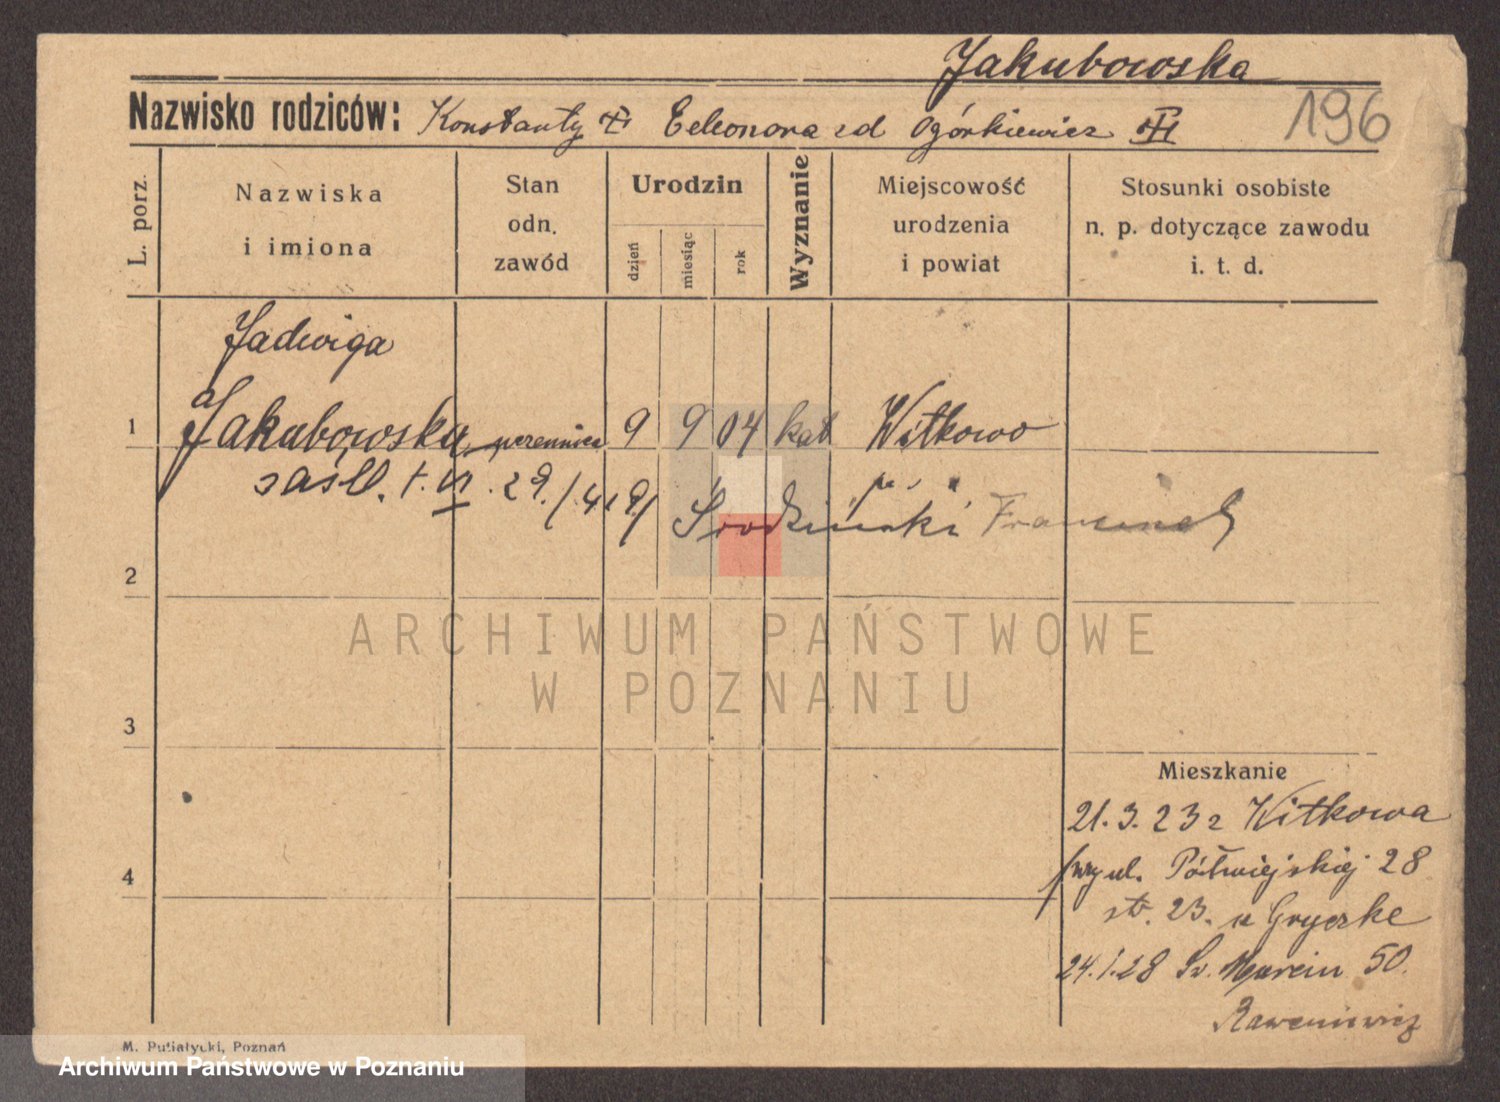 Jakubowska
Nazwisko rodziców: Konstanty Eeleonora zd Ogórkiewicz
196
L. porz.
Nazwiska i imiona
Stan odn. zawód
Urodzin
dzień
miesiąc
rok
Wyznanie
Miejscowość urodzenia i powiat
Stosunki osobiste n. p. dotyczące zawodu i. t. d.
Jadwiga
1 Jakubowska uczennica 9 9 04 kat Witkowo
zaśl. 1. VI. 29.
Środziński
2
ARCHIWUM PAŃSTWOWE
W POZNANIU
3
Mieszkanie
21. 3. 23 z Witkowa
4
ul. Półwiejskiej 28
st. 23. u Gryczke
24.1.28 Św. Marcin 50.
M. Pusiatycki, Poznań
Archiwum Państwowe w Poznaniu